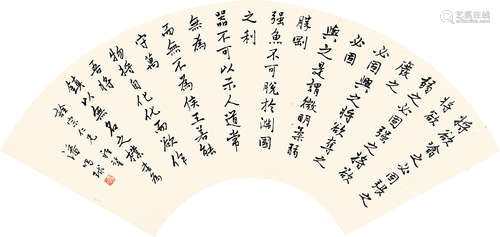 將欲翕之必固張
之將欲
弱之必固强之將欲
廢之
必固興之將欲奪之
必固
與之是謂微明柔弱
勝剛
强魚不可脫於淵國
之利
器不可以示人道常
無為
而無不為侯王若能
守萬
物將自化化而欲作
吾將
鎮以無名之樸
仁兄
潘